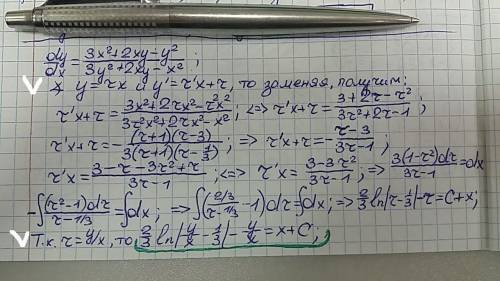 dy/dx = (3x²+2xy-y²)/(3y²+2xy-x²);
y = τx и y' = τ'x+τ, то заменяя, получим:
τ'x+τ = (3x²+2τx²-τ²x²)/(3τ²x²+2τx²-x²); <=> τ'x+τ = (3+2τ-τ²)/(3τ²+2τ-1);
τ'x+τ = -((τ+1)(τ-3))/(3(τ+1)(τ-1/3)); => τ'x+τ = -(τ-3)/(3τ-1);
τ'x = (3-τ-3τ²+τ)/(3τ-1); <=> τ'x = (3-3τ²)/(3τ-1); => (3(1-τ²)dτ)/(3τ-1) = dx
-∫((τ²-1)dτ)/(τ-1/3) = ∫dx; => ∫((2/3)/(τ-1/3) -1)dτ = ∫dx; => 2/3 ln|τ-1/3|-τ = C+x;
Т.к. τ = y/x, то 2/3 ln|y/x - 1/3| - y/x = x+C;